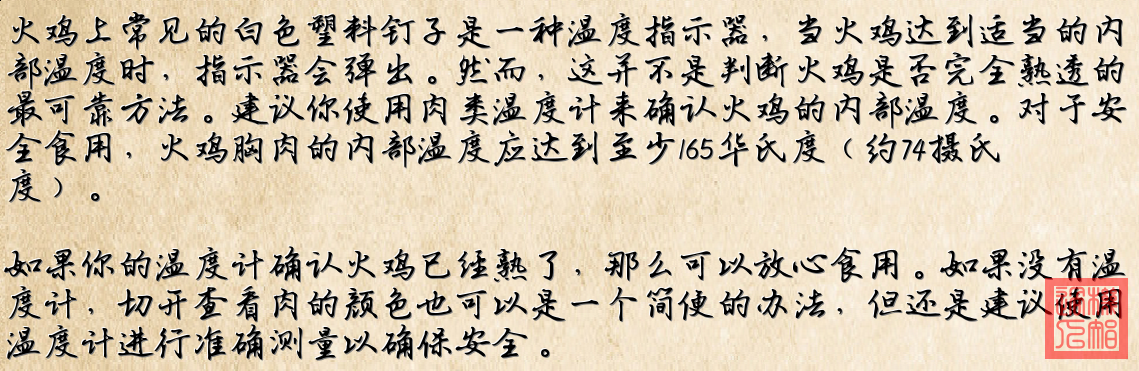 火鸡上常见的白色塑料钉子是一种温度指示器，当火鸡达到适当的内
部温度时，指示器会弹出。然而，这并不是判断火鸡是否完全熟透的
最可靠方法。建议你使用肉类温度计来确认火鸡的内部温度。对于安
全食用，火鸡胸肉的内部温度应达到至少165华氏度（约74摄氏
度）。
如果你的温度计确认火鸡已经熟了，那么可以放心食用。如果没有温
度计，切开查看肉的颜色也可以是一个简便的办法，但还是建议使用
温度计进行准确测量以确保安全。